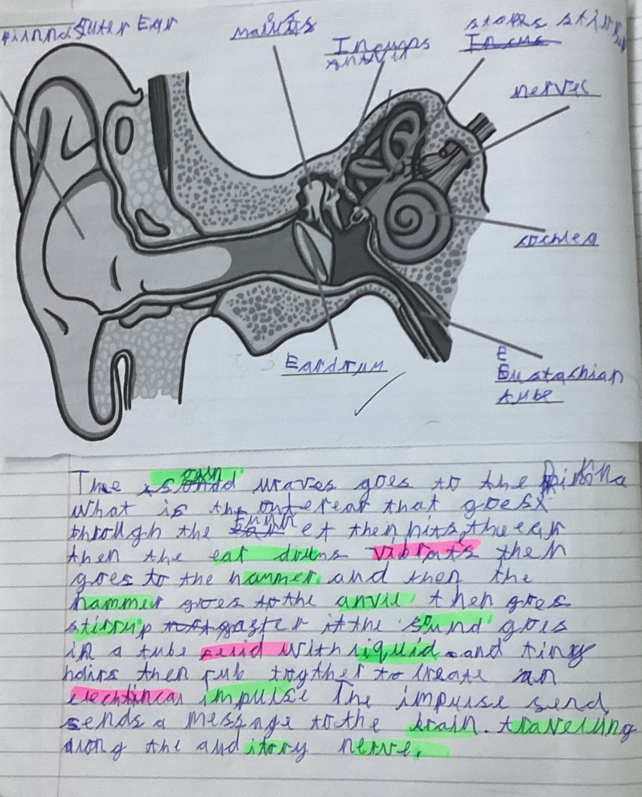 Pinna outer Ear
Malius
Incups
Anvil
stapes stirrup
Incus
nerves
cochlea
Eardrum
Eustachian
tube
The sound waves goes to the Pinna
What is the outerear that goes
through the funnel then hits the ear
then the ear drums vibrats then
goes to the hammer and then the
hammer goes to the anvil then goes
stirrup after it the sound goes
in a tube with liquid and tiny
hairs then rub together to create an
electrical impulse The impulse send
sends a message to the brain. traveling
along the auditory nerve.